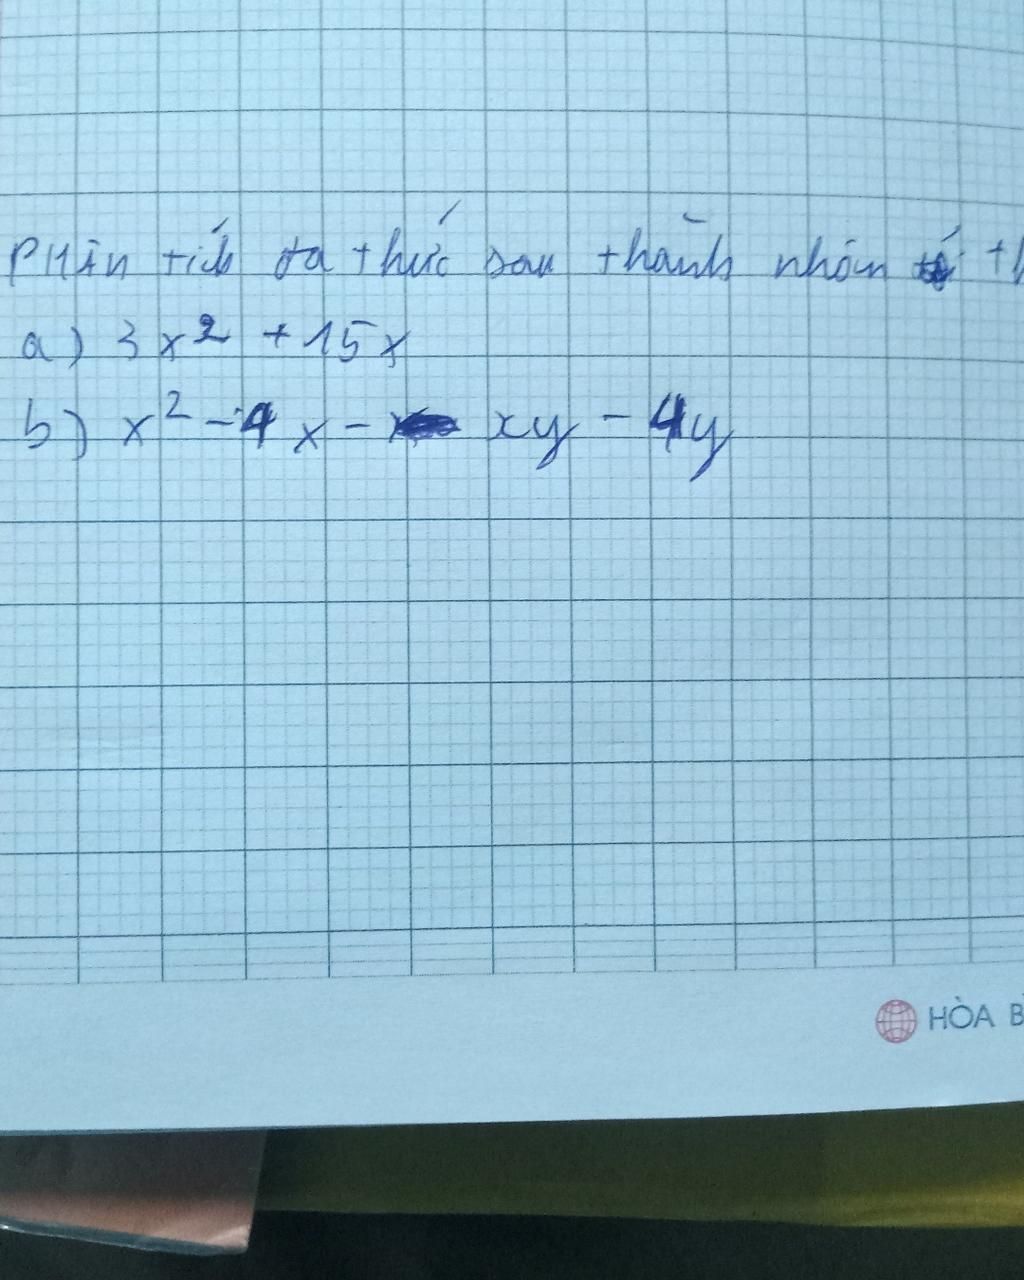 Phân tích đa thức sau thành nhân tử
a) 3x² + 15x
b) x² - 4x - xy - 4y
HÒA B